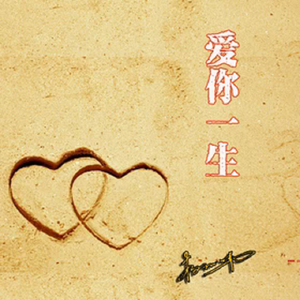 爱你一生